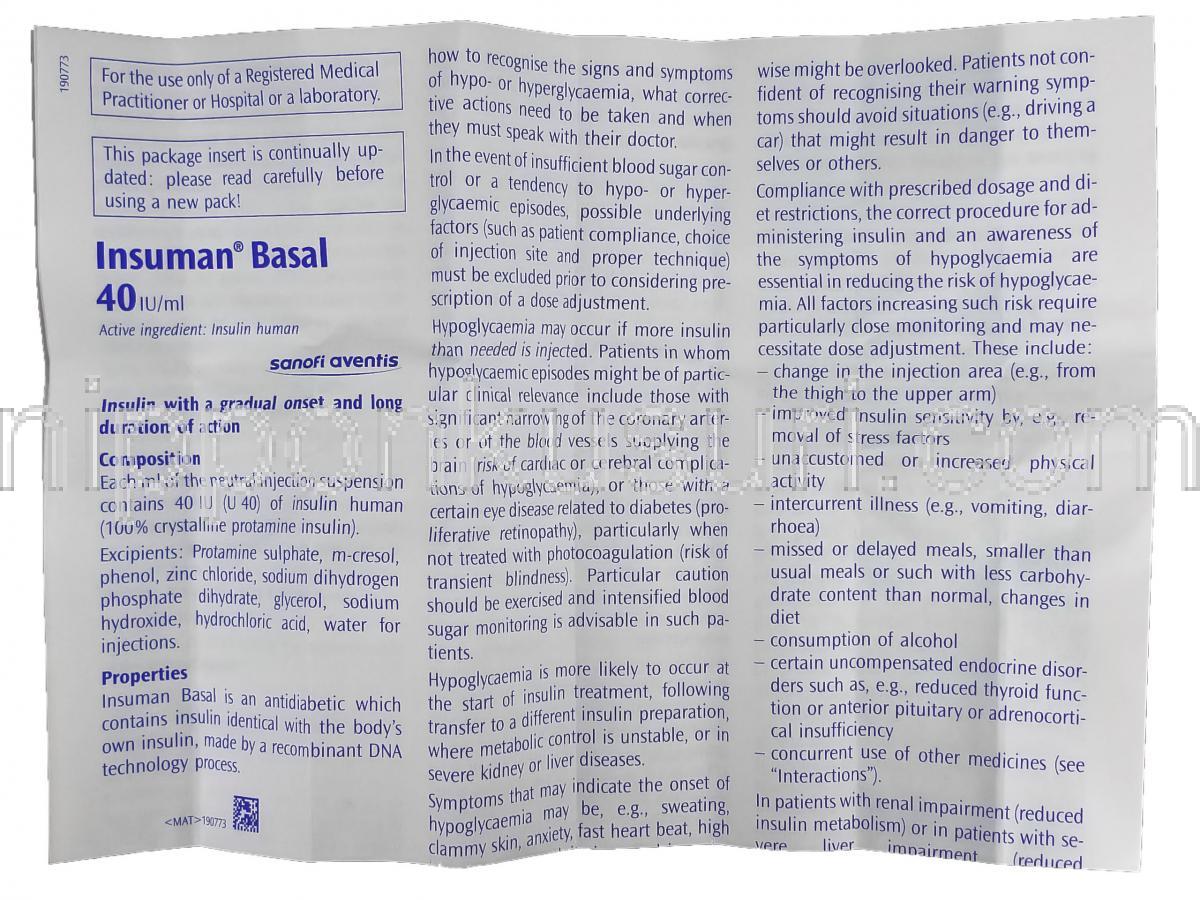 190773
For the use only of a Registered Medical
Practitioner or Hospital or a laboratory.
This package insert is continually up-
dated: please read carefully before
using a new pack!
Insuman® Basal
40 IU/ml
Active ingredient: Insulin human
sanofi aventis
Insulin with a gradual onset and long
duration of action
Composition
Each ml of the neutral injection suspension
contains 40 IU (U 40) of insulin human
(100% crystalline protamine insulin).
Excipients: Protamine sulphate, m-cresol,
phenol, zinc chloride, sodium dihydrogen
phosphate dihydrate, glycerol, sodium
hydroxide, hydrochloric acid, water for
injections.
Properties
Insuman Basal is an antidiabetic which
contains insulin identical with the body's
own insulin, made by a recombinant DNA
technology process.
<MAT>190773
how to recognise the signs and symptoms
of hypo- or hyperglycaemia, what correc-
tive actions need to be taken and when
they must speak with their doctor.
In the event of insufficient blood sugar con-
trol or a tendency to hypo- or hyper-
glycaemic episodes, possible underlying
factors (such as patient compliance, choice
of injection site and proper technique)
must be excluded prior to considering pre-
scription of a dose adjustment.
Hypoglycaemia may occur if more insulin
than needed is injected. Patients in whom
hypoglycaemic episodes might be of partic-
ular clinical relevance include those with
significant narrowing of the coronary arter-
ies or of the blood vessels supplying the
brain (risk of cardiac or cerebral complica-
tions of hypoglycaemia), or those with a
certain eye disease related to diabetes (pro-
liferative retinopathy), particularly when
not treated with photocoagulation (risk of
transient blindness). Particular caution
should be exercised and intensified blood
sugar monitoring is advisable in such pa-
tients.
Hypoglycaemia is more likely to occur at
the start of insulin treatment, following
transfer to a different insulin preparation,
where metabolic control is unstable, or in
severe kidney or liver diseases.
Symptoms that may indicate the onset of
hypoglycaemia may be, e.g., sweating,
clammy skin, anxiety, fast heart beat, high
wise might be overlooked. Patients not con-
fident of recognising their warning symp-
toms should avoid situations (e.g., driving a
car) that might result in danger to them-
selves or others.
Compliance with prescribed dosage and di-
et restrictions, the correct procedure for ad-
ministering insulin and an awareness of
the symptoms of hypoglycaemia are
essential in reducing the risk of hypoglycae-
mia. All factors increasing such risk require
particularly close monitoring and may ne-
cessitate dose adjustment. These include:
– change in the injection area (e.g., from
the thigh to the upper arm)
– improved insulin sensitivity by, e.g., re-
moval of stress factors
– unaccustomed or increased physical
activity
– intercurrent illness (e.g., vomiting, diar-
rhoea)
– missed or delayed meals, smaller than
usual meals or such with less carbohy-
drate content than normal, changes in
diet
– consumption of alcohol
– certain uncompensated endocrine disor-
ders such as, e.g., reduced thyroid func-
tion or anterior pituitary or adrenocorti-
cal insufficiency
– concurrent use of other medicines (see
"Interactions").
In patients with renal impairment (reduced
insulin metabolism) or in patients with se-
vere liver impairment (reduced
nipponkusuri.com